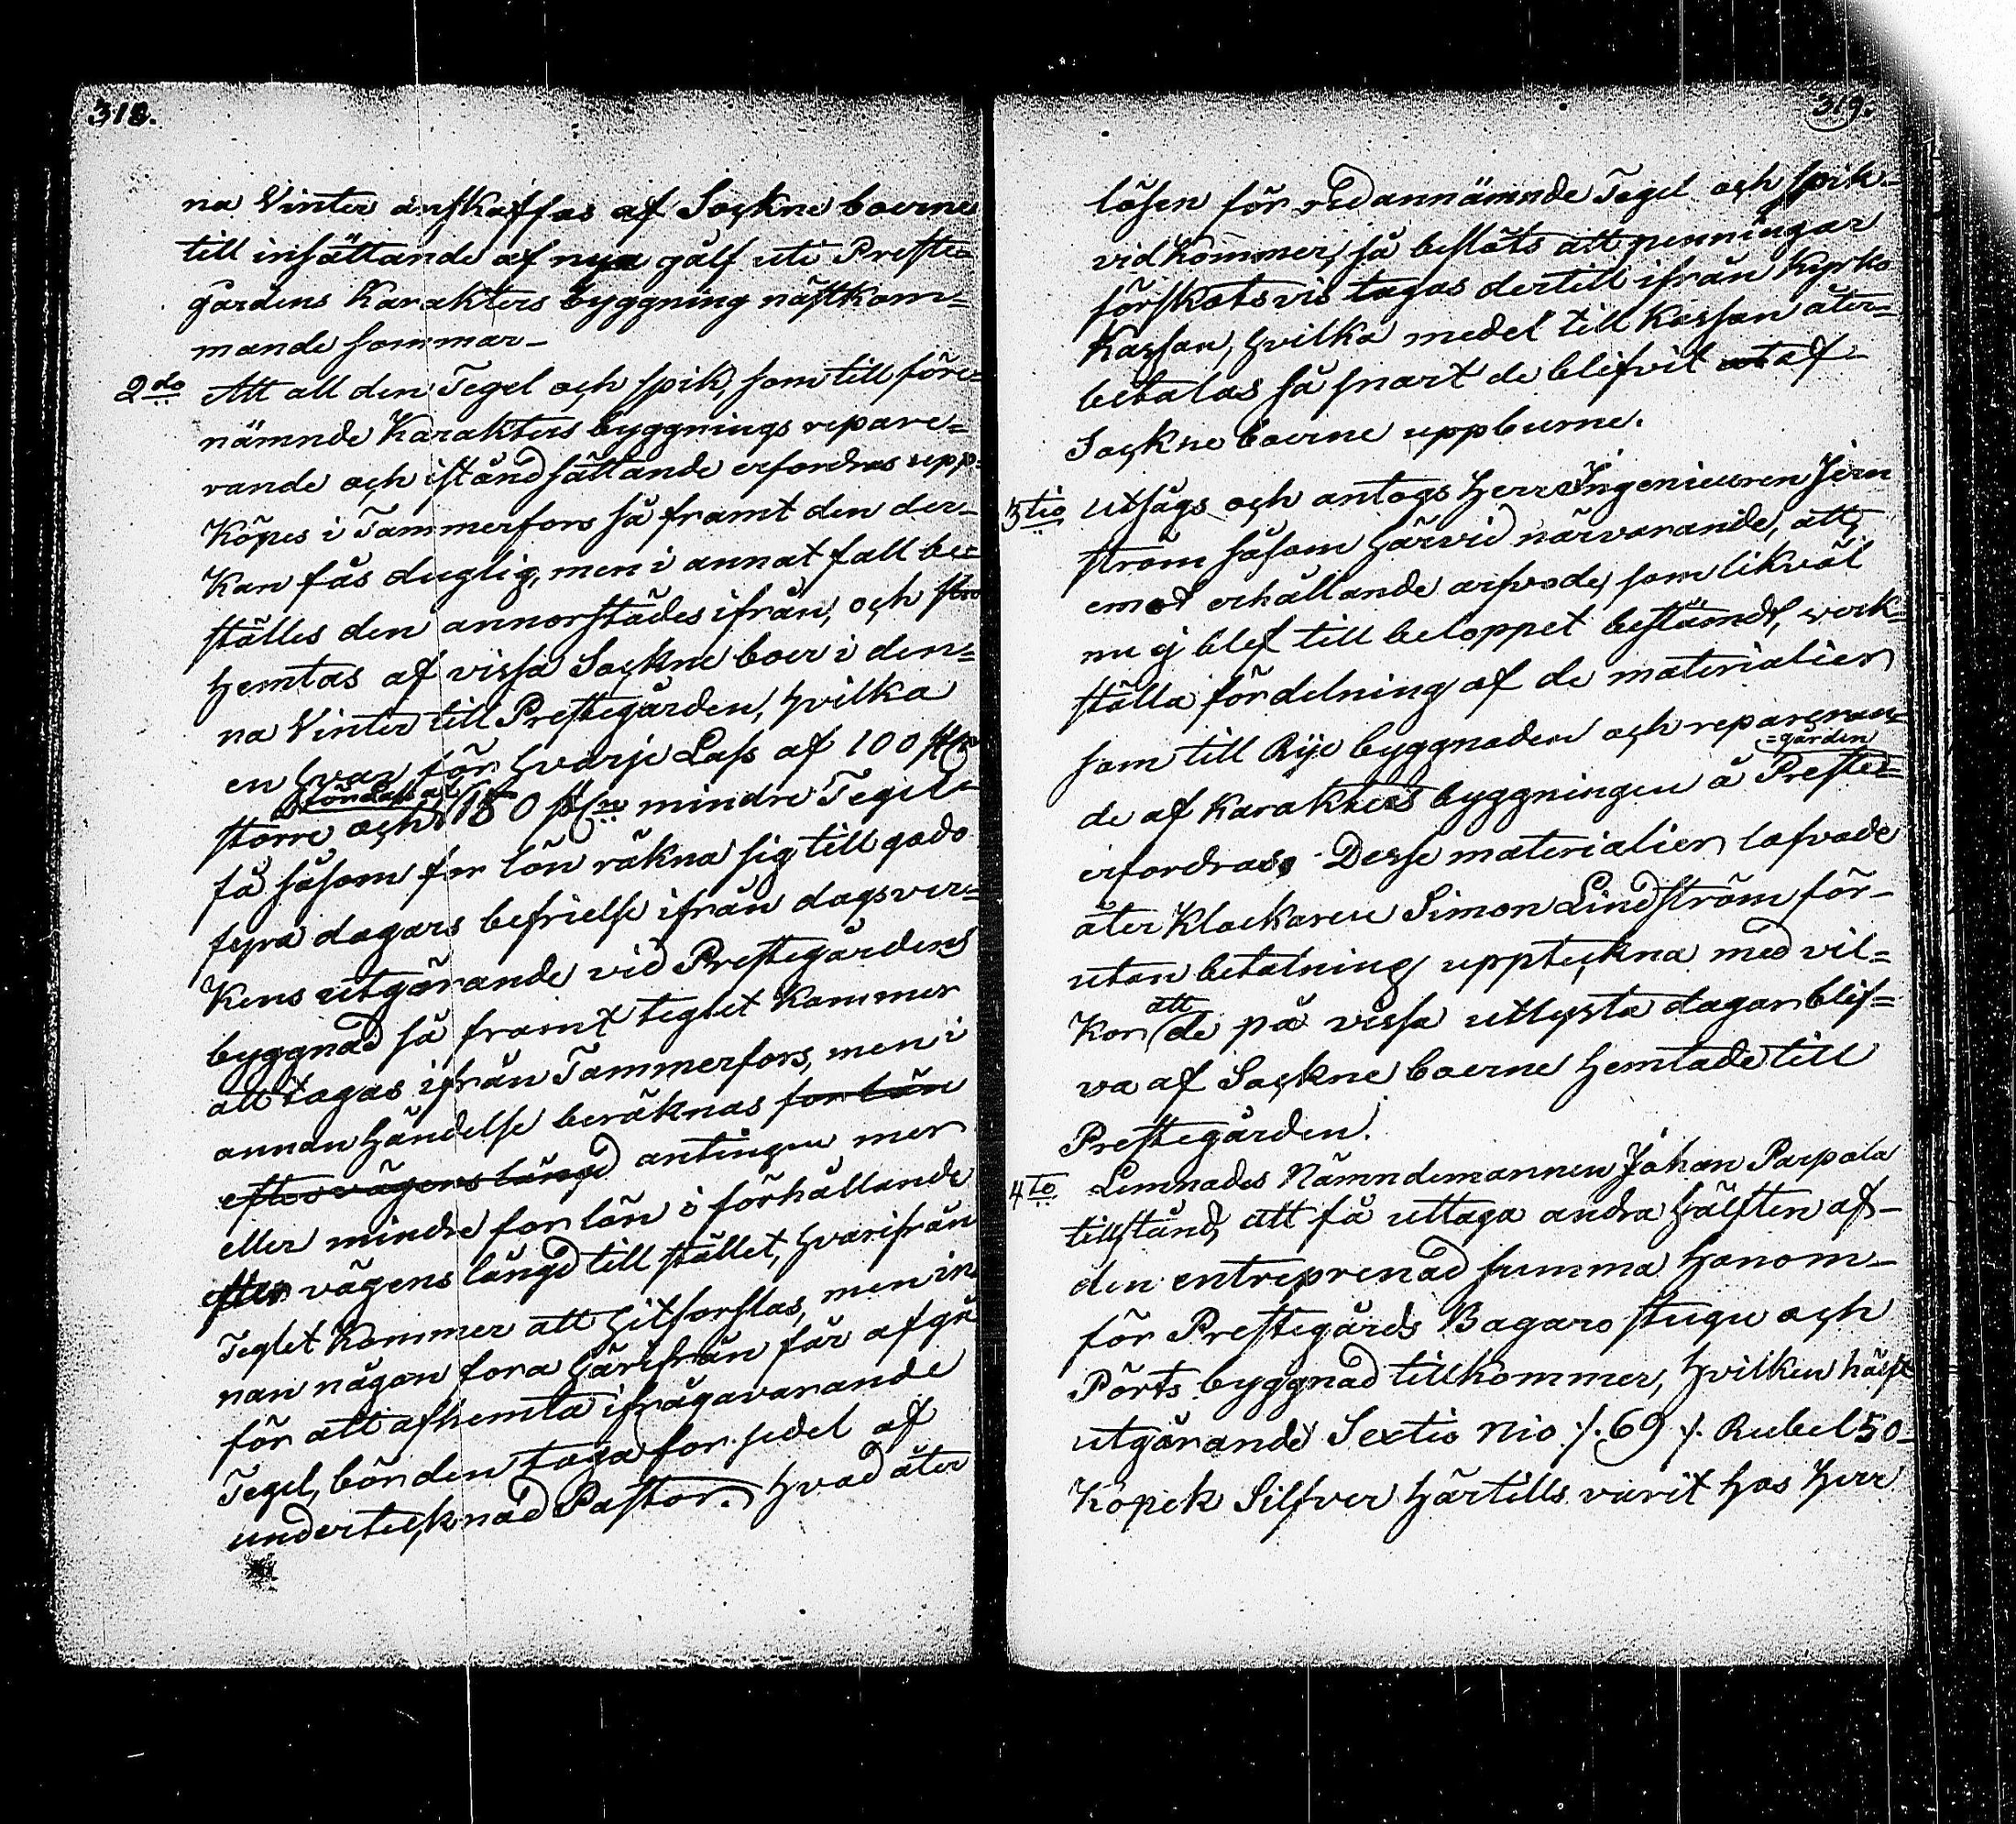 318.
na Vinter anskaffas af Sockne boerne
till insättande af nya gålf uti Preste
gårdens Karakters byggning nästkom=
mande sommar_
2do Att all den Tegel och spik, som till före=
nämnde Karakters byggnings repare=
rande och iståndsättande erfordras upp=
Köpes i Tammerfors så framt den der_
Kan fås duglig, men i annat fall be=
ställes den annorstädes ifrån, och
hemtas af vissa Sockne boer i den=
na Vinter till Prestegården, hvilka
en hvar för hvarje Lass af 100 st
för Lass af
större och 150 st mindre Tegel
få såsom for lön räkna sig till godo
fyra dagars befrielse ifrån dagsver=
Kens utgörande vid Prestegårdens
byggnad så framt teglet Kommer
att tagas ifrån Tammerfors, men i
annan händelse beräknas for lön
efter vägens längd antingen mer
eller mindre for lön i förhållande
efter vägens längd till stället, hvarifrån
Teglet Kommer att hitforslas, men in
nan någon fora härifrån får afgå
för att afhemta ifrågavarande
Tegel, bör den taga for sedel af
undertecknad Pastor. Hvad åter
319.
lösen för redannämnde Tegel och spik_
vidkommer, så beslöts att penningar
förskotsvis tagas dertill ifrån Kyrko
Kassan, hvilka medel till kassan åter=
betalas så snart de blifvit af
Sockne boerne uppburne.
3tio Utsågs och antogs Herr Ingenieuren Jern
ström såsom härvid närvarande, att,
emot erhållande arfvode, som likväl
nu ej blef till beloppet bestämdt, verk=
ställa fördelning af de materialier
som till Rije byggnaden och repareran=
=gården
de af Karakters byggningen å Preste=
erfordras. Desse materialier lofvade
åter Klockaren Simon Lindström för_
utan betalning uppteckna med vil=
att
Kor de på vissa utlysta dagar blif=
va af Sockne boerne hemtade till
Prestegården.
4to Lemnades Nämndemannen Johan Parpola
tillstånd, att få uttaga andra hälften af_
den entreprenad summa honom_
för Prestegårds Bagare stugu och
Pörts byggnad tillkommer, hvilken hälft
utgörande Sextio Nio /. 69 /. Rubel 50_
Kopek Silfver härtills varit hos Herr